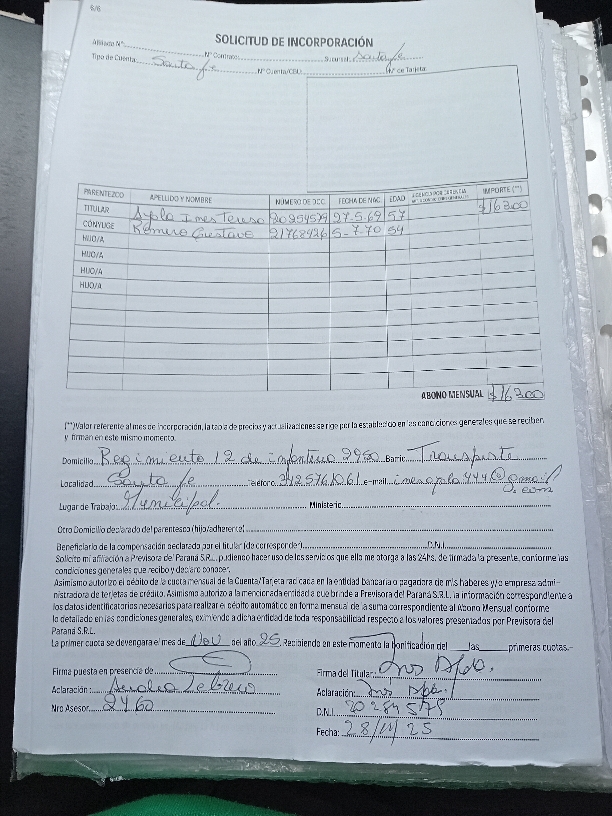 6/6
SOLICITUD DE INCORPORACIÓN
Afiliado N°: N° Contrato: Sucursal: Santa fe
Tipo de Cuenta: Santa fe N° Cuenta/CBU: N° de Tarjeta:
PARENTEZCO APELLIDO Y NOMBRE NÚMERO DE DOC. FECHA DE NAC. EDAD IMPORTE (**)
TITULAR Ines Teresa 27-5-69 57 $16300
CONYUGE Romero Gustavo 21768426 5-7-70 54
HIJO/A
HIJO/A
HIJO/A
HIJO/A
ABONO MENSUAL $16300
(**)Valor referente al mes de incorporación, la tabla de precios y actualizaciones se rige por lo establecido en las condiciones generales que se reciben
y firman en este mismo momento.
Domicilio Regimiento 12 de infanteria Barrio Transporte
Localidad Santa fe Teléfono e-mail
Lugar de Trabajo: Municipal. Ministerio:
Otro Domicilio declarado del parentesco (hijo/adherente):
Beneficiario de la compensación declarado por el titular (de corresponder) D.N.I.
Solicito mi afiliación a Previsora del Paraná S.R.L., pudiendo hacer uso de los servicios que ello me otorga a las 24hs. de firmada la presente, conforme las
condiciones generales que recibo y declaro conocer.
Asimismo autorizo el débito de la cuota mensual de la Cuenta/Tarjeta radicada en la entidad bancaria o pagadora de mis haberes y/o empresa admi-
nistradora de tarjetas de crédito. Asimismo autorizo a la mencionada entidad a que brinde a Previsora del Paraná S.R.L. la información correspondiente a
los datos identificatorios necesarios para realizar el débito automático en forma mensual de la suma correspondiente al Abono Mensual conforme
lo detallado en las condiciones generales, eximiendo a dicha entidad de toda responsabilidad respecto a los valores presentados por Previsora del
Paraná S.R.L.
La primer cuota se devengara el mes de Nov del año 25. Recibiendo en este momento la bonificación del las primeras cuotas.-
Firma puesta en presencia de Firma del Titular:
Aclaración: Aclaración:
Nro Asesor 2460 D.N.I.
Fecha: 28/11/25